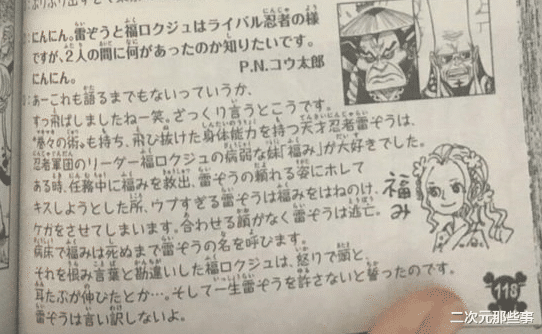 にんにん。雷ぞうと福ロクジュはライバル忍者の様
ですが、2人の間に何があったのか知りたいです。
にんにん。
P.N.コウ太郎
あーこれも語るまでもないっていうか、
すっ飛ばしましたねー笑。ざっくり言うとこうです。
"巻々の術"も持ち、飛び抜けた身体能力を持つ天才忍者雷ぞうは、
忍者軍団のリーダー福ロクジュの病弱な妹「福み」が大好きでした。
ある時、任務中に福みを救出、雷ぞうの頼れる姿にホレて
キスしようとした所、ウブすぎる雷ぞうは福みをはねのけ、
ケガをさせてしまいます。合わせる顔がなく雷ぞうは逃亡。
病床で福みは死ぬまで雷ぞうの名を呼びます。
それを恨み言葉と勘違いした福ロクジュは、怒りで頭と、
耳たぶが伸びたとか…。そして一生雷ぞうを許さないと誓ったのです。
雷ぞうは言い訳しないよ。
福み
118
二次元那些事